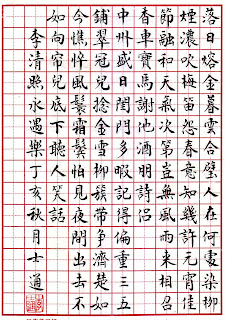 落日熔金暮雲合璧人在何處染柳
煙濃吹梅笛怨春意知幾許元宵佳
節融和天氣次第豈無風雨來相召
香車寶馬謝他酒朋詩侶
中州盛日閨門多暇記得偏重三五
鋪翠冠兒撚金雪柳簇帶爭濟楚如
今憔悴風鬟霜鬢怕見夜間出去不
如向簾兒底下聽人笑語
李清照永遇樂丁亥秋月士通